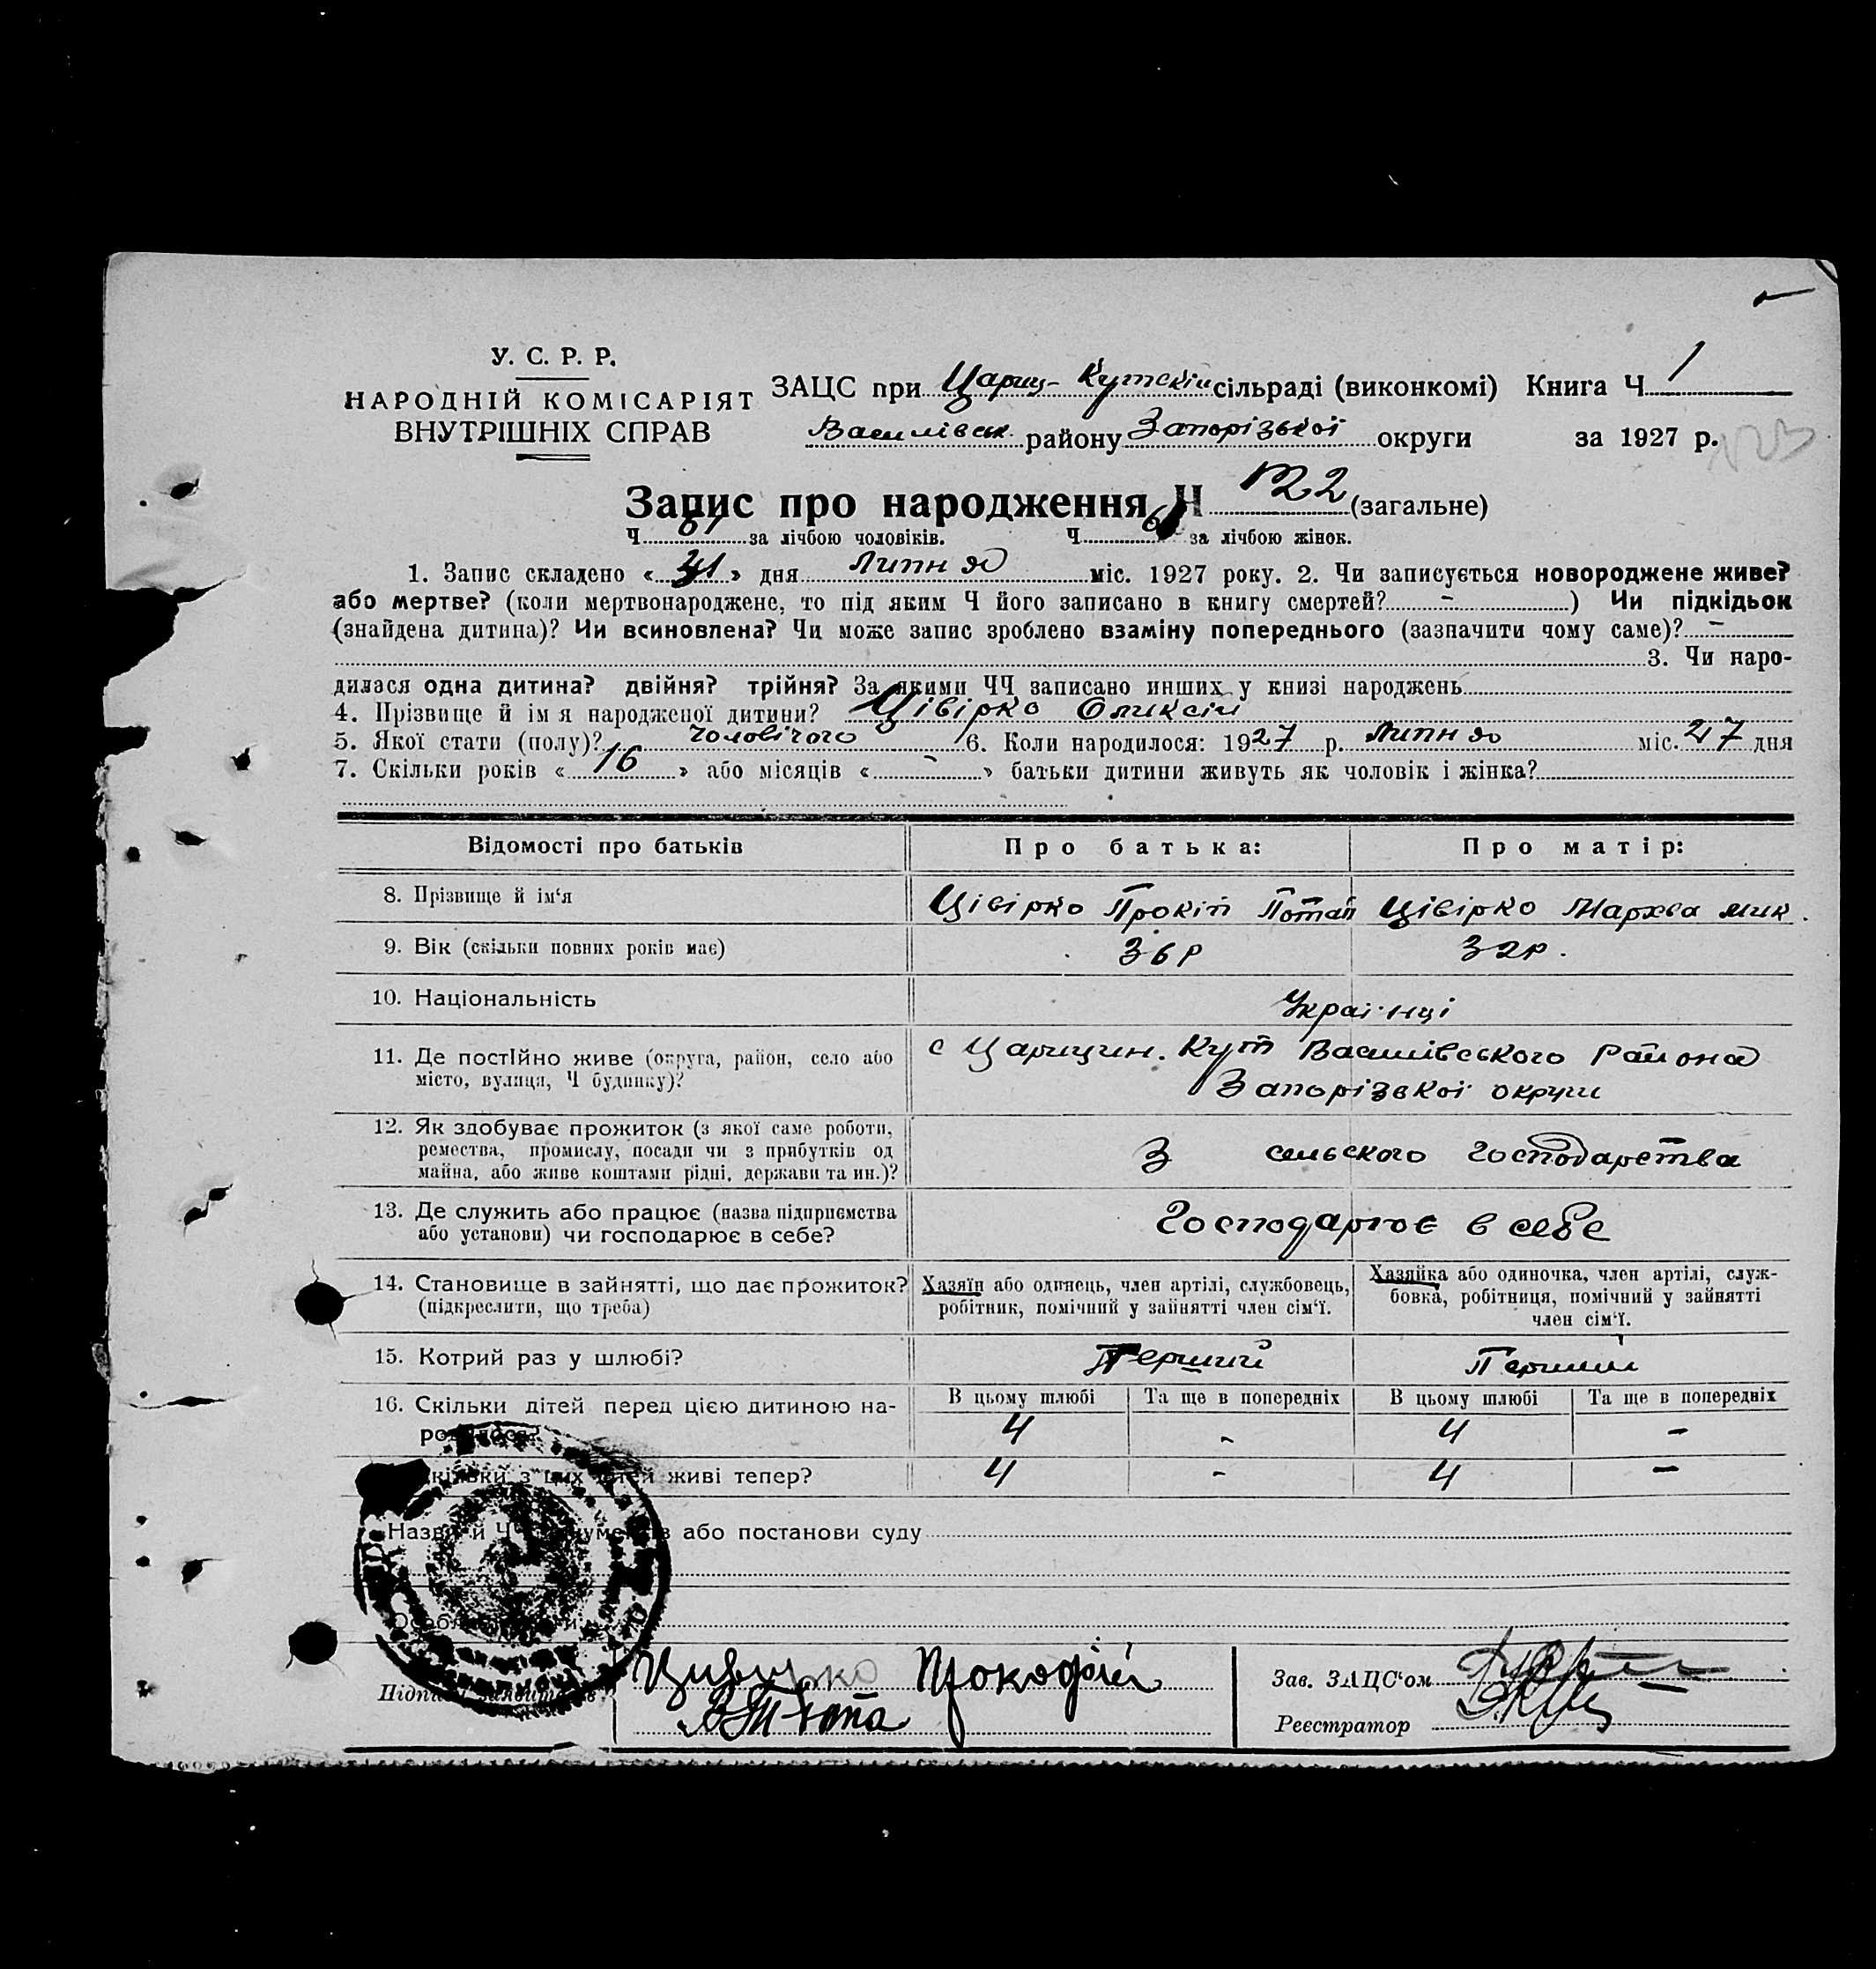 У. С. Р. Р.
НАРОДНІЙ КОМІСАРІЯТ
ВНУТРІШНІХ СПРАВ
ЗАЦС при Цариц-Кутскій сільраді (виконкомі) Книга Ч 1
Василівськ. району Запорізької округи за 1927 р.
Запис про народження Ч 122 (загальне)
Ч 61 за лічбою чоловіків. Ч за лічбою жінок.
1. Запис складено « 31 » дня Липня міс. 1927 року. 2. Чи записується новороджене живе?
або мертве? (коли мертвонароджене, то під яким Ч його записано в книгу смертей? - ) Чи підкідьок
(знайдена дитина)? Чи всиновлена? Чи може запис зроблено взаміну попереднього (зазначити чому саме)? -
3. Чи наро-
дилася одна дитина? двійня? трійня? За якими ЧЧ записано инших у книзі народжень
4. Прізвище й імя народженої дитини? Цівірко Оликсій
5. Якої стати (полу)? чоловічого 6. Коли народилося: 1927 р. Липня міс. 27 дня
7. Скільки років « 16 » або місяців « - » батьки дитини живуть як чоловік і жінка?
Відомості про батьків Про батька: Про матір:
8. Прізвище й ім‘я Цівірко Прокіп Потап Цівірко Мархва Мик.
9. Вік (скільки повних років має) 36 р 32 р.
10. Національність Українці
11. Де постійно живе (округа, район, село або
місто, вулиця, Ч будинку)?
с Царицин. Кут Василівського Района
Запорізької округи
12. Як здобуває прожиток (з якої саме роботи,
ремества, промислу, посади чи з прибутків од
майна, або живе коштами рідні, держави та ин.)?
З сельского господарства
13. Де служить або працює (назва підприємства
або установи) чи господарює в себе?
Господарює в себе
14. Становище в зайнятті, що дає прожиток?
(підкреслити, що треба)
Хазяїн або одинець, член артілі, службовець,
робітник, помічний у зайнятті член сім‘ї.
Хазяйка або одиночка, член артілі, служ-
бовка, робітниця, помічний у зайнятті
член сім‘ї.
15. Котрий раз у шлюбі? Перший Перший
16. Скільки дітей перед цією дитиною на-
родилося?
В цьому шлюбі Та ще в попередніх В цьому шлюбі Та ще в попередніх
4 - 4 -
Скільки з цих дітей живі тепер? 4 - 4 -
Назви й ЧЧ документів або постанови суду
Підписи заявителів
Цивирко Прокофій
Зав. ЗАЦС‘ом
Реєстратор